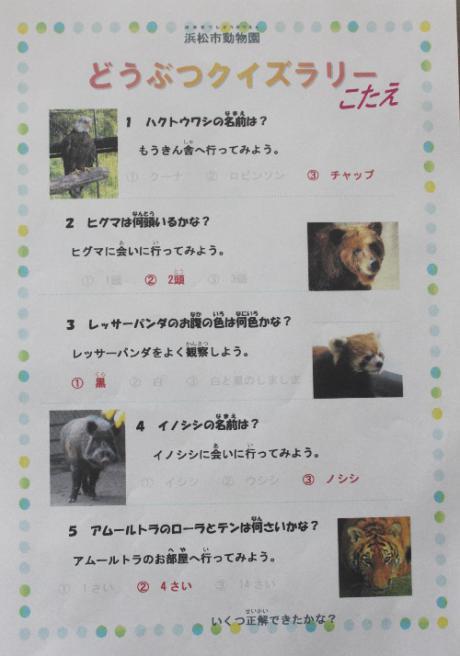 浜松市動物園
どうぶつクイズラリー
こたえ
1 ハクトウワシの名前は？
もうきん舎へ行ってみよう。
① クーナ ② ロビンソン ③ チャップ
2 ヒグマは何頭いるかな？
ヒグマに会いに行ってみよう。
① 1頭 ② 2頭 ③ 3頭
3 レッサーパンダのお腹の色は何色かな？
レッサーパンダをよく観察しよう。
① 黒 ② 白 ③ 白と黒のしましま
4 イノシシの名前は？
イノシシに会いに行ってみよう。
① イシシ ② ウシシ ③ ノシシ
5 アムールトラのローラとテンは何さいかな？
アムールトラのお部屋へ行ってみよう。
① 1さい ② 4さい ③ 14さい
いくつ正解できたかな？